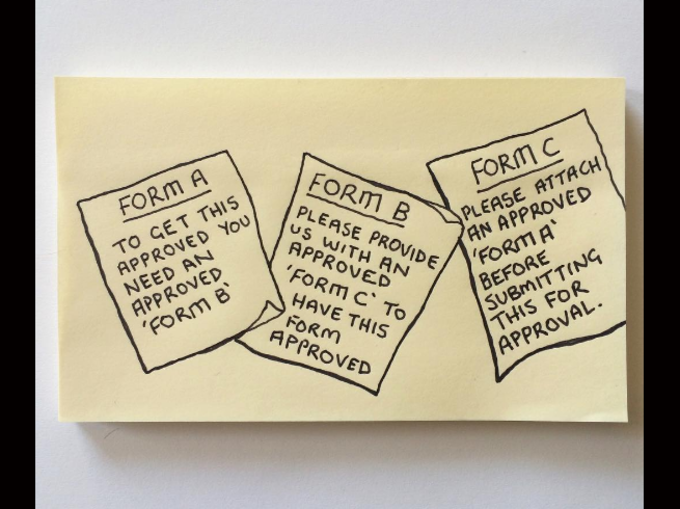 FORM A
TO GET THIS
APPROVED YOU
NEED AN
APPROVED
'FORM B'
FORM B
PLEASE PROVIDE
US WITH AN
APPROVED
'FORM C' TO
HAVE THIS
FORM
APPROVED
FORM C
PLEASE ATTACH
AN APPROVED
'FORM A'
BEFORE
SUBMITTING
THIS FOR
APPROVAL.